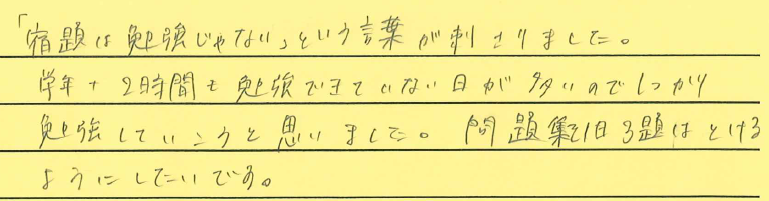 「宿題は勉強じゃない」という言葉が刺さりました。
学年+2時間も勉強できていない日が多いのでしっかり
勉強していこうと思いました。問題集を1日3題はとける
ようにしたいです。